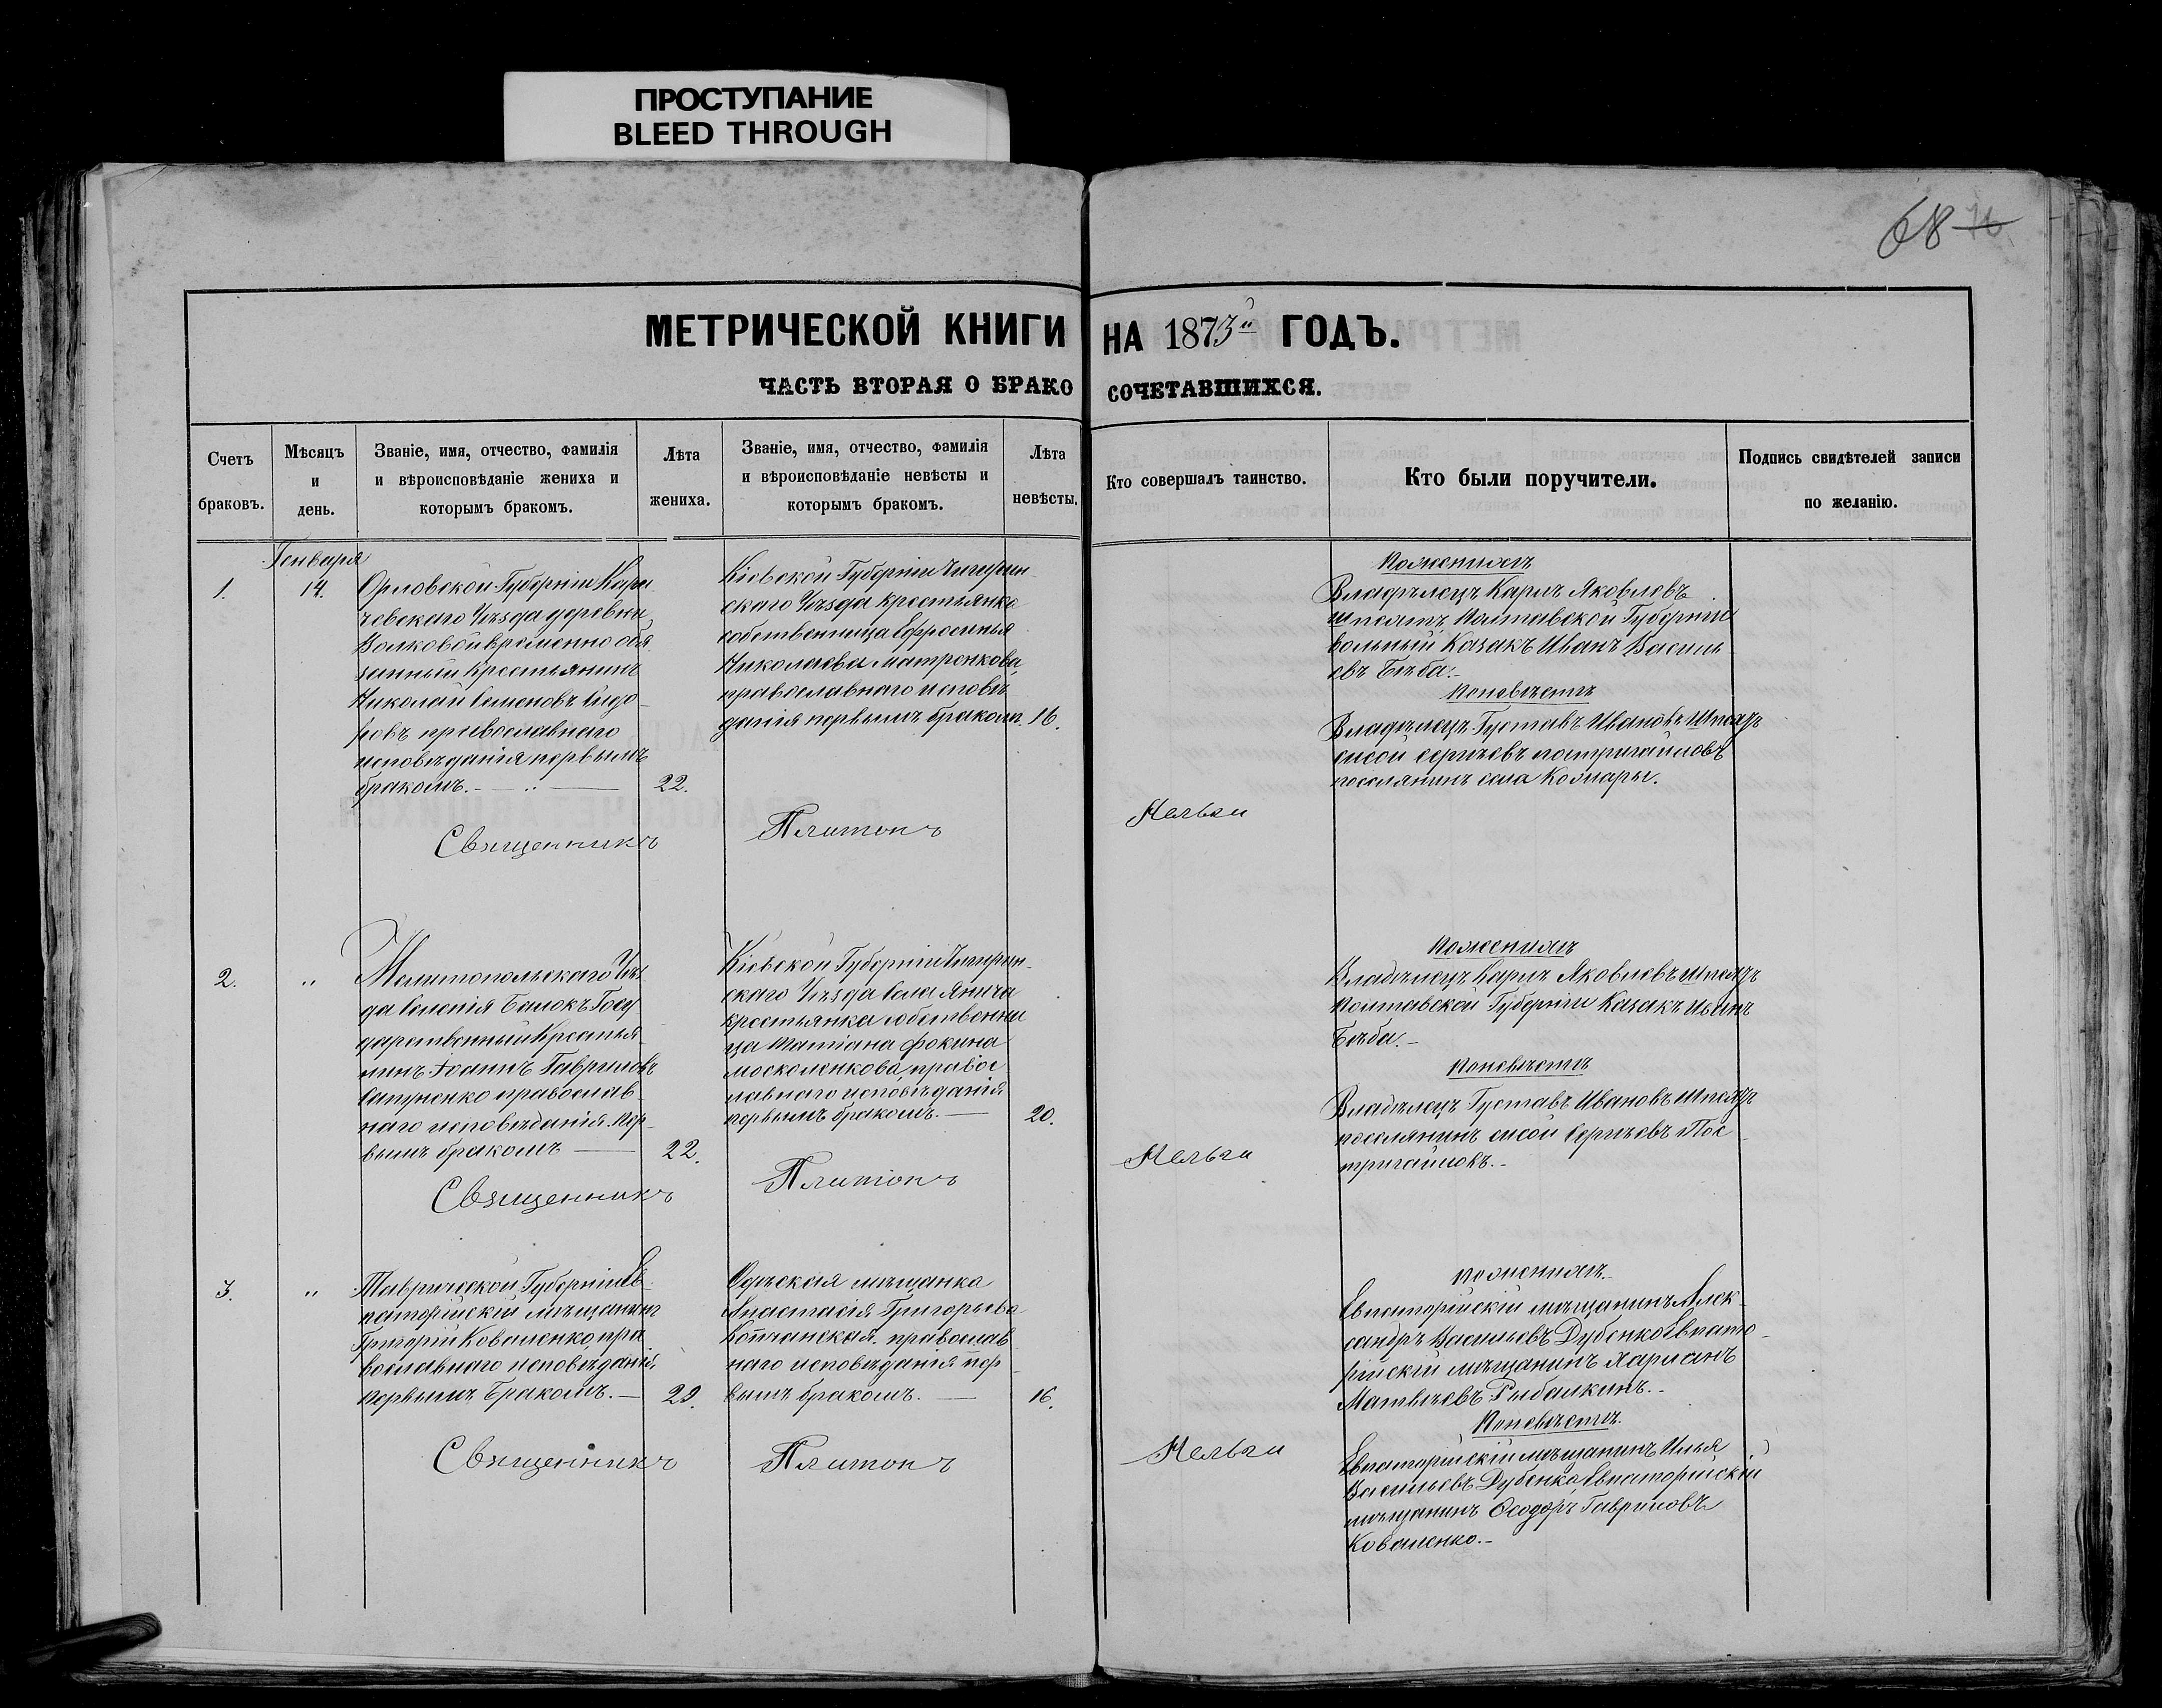 ПРОСТУПАНИЕ
BLEED THROUGH
68 76
МЕТРИЧЕСКОЙ КНИГИ НА 1873й ГОДЪ.
ЧАСТЬ ВТОРАЯ О БРАКОСОЧЕТАВШИХСЯ.
Счетъ браковъ.
Мѣсяцъ и день.
Званіе, имя, отчество, фамилія
и вѣроисповѣданіе жениха и
которымъ бракомъ.
Лѣта жениха.
Званіе, имя, отчество, фамилія
и вѣроисповѣданіе невѣсты и
которымъ бракомъ.
Лѣта невѣсты.
Кто совершалъ таинство.
Кто были поручители.
Подпись свидѣтелей записи
по желанію.
Генваря
1.
14.
Орловской Губерніи Кара
чевскаго Уѣзда деревни
Волковой временно обя
занный крестьянинъ
Николай Семеновъ Сидо
ровъ православнаго
исповѣданія первымъ
бракомъ.
22.
Кіевской Губерніи Чигирин
скаго Уѣзда крестьянка
собственница Ефросинья
Николаева Матренкова,
православнаго исповѣ
данія первымъ бракомъ.
16.
По женихѣ
Владѣлецъ Карлъ Яковлевъ
Полтавской Губерніи
вольный Казакъ Иванъ Василь
евъ Бѣба.
По невѣстѣ
Владѣлецъ Густавъ Ивановъ
Сисой Сергѣевъ
поселянинъ села
Священникъ Платонъ
2.
"
Мелитопольскаго Уѣз
да Селенія Балокъ Госу
дарственный Крестья
нинъ Іоаннъ Гавриловъ
православ
наго исповѣданія пер
вымъ бракомъ
22.
Кіевской Губерніи Чигирин
скаго Уѣзда села Янича
крестьянка собственни
ца Татіана Фокина
Москоленкова, правос
лавнаго исповѣданія
первымъ бракомъ.
20.
По женихѣ
Владѣлецъ Карлъ Яковлевъ
Полтавской Губерніи Казакъ Иванъ
Бѣба.
По невѣстѣ
Владѣлецъ Густавъ Ивановъ
поселянинъ Сисой Сергѣевъ
Священникъ Платонъ
3.
"
Таврической Губерніи Ев
паторійскій мѣщанинъ
Григорій Коваленко, пра
вославнаго исповѣданія,
первымъ бракомъ.
Одеская мѣщанка
Анастасія Григорьева
православ
наго исповѣданія пер
вымъ бракомъ.
16.
По женихѣ
Евпаторійскій мѣщанинъ Алек
сандръ Васильевъ Дубенко Евпато
рійскій мѣщанинъ
Матвѣевъ Рыбалкинъ.
По невѣстѣ
Евпаторійскій мѣщанинъ Илья
Васильевъ Дубенко, Евпаторійскій
мѣщанинъ Ѳеодоръ Гавриловъ
Коваленко.
Священникъ Платонъ